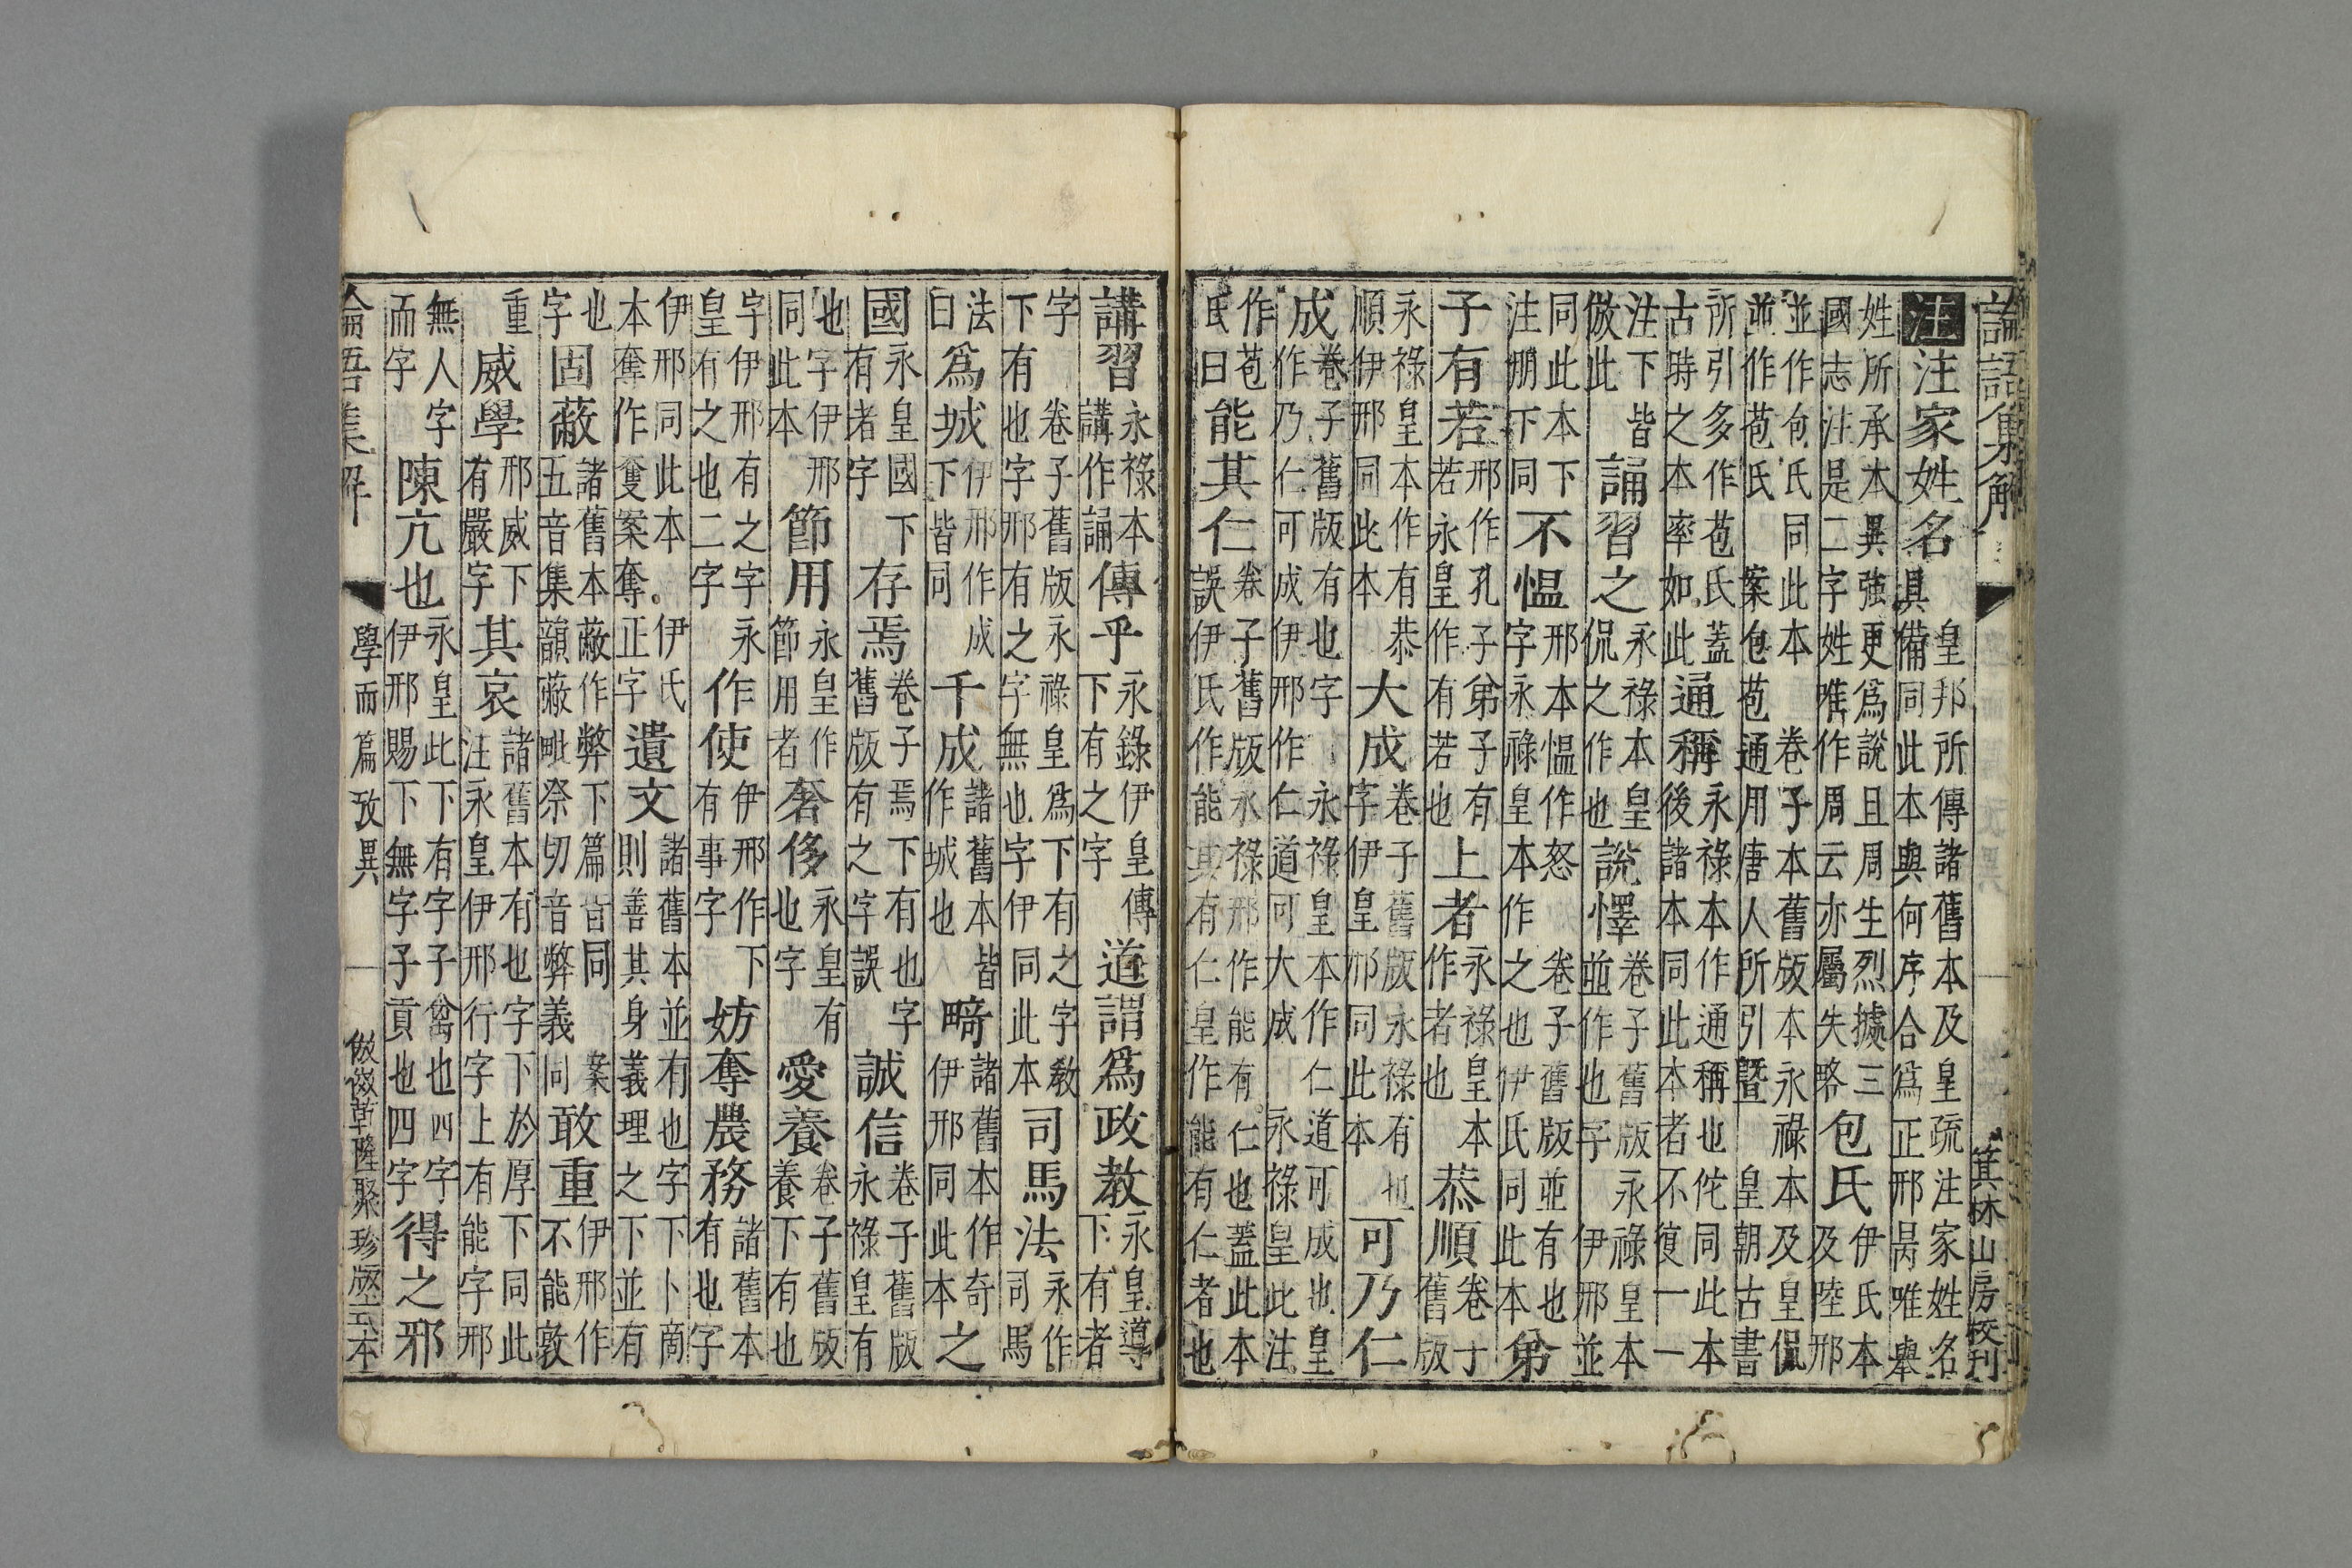 論語集解 箕林山房校刊
注 注家姓名 皇邦所傳諸舊本及皇疏注家姓名 具備同此本與何序合爲正邢昺唯舉
姓所承本異強更爲說且周生烈據三 國志注是二字姓唯作周云亦屬失略 包氏 伊氏本 及陸邢
並作包氏同此本 卷子本舊版本永祿本及皇侃 並作苞氏 案包苞通用唐人所引暨皇朝古書
所引多作苞氏蓋 古時之本率如此 通稱 永祿本作通稱也佗同此本 後諸本同此本者不復一一
注下皆 倣此 誦習之 永祿本皇 侃之作也 說懌 卷子舊版永祿皇本 並作也字伊邢並
同此本下 注朋下同 不慍 邢本慍作怒 字永祿皇本作之也 卷子舊版並有也 伊氏同此本 弟
子有若 邢作孔子弟子有 若永皇作有若也 上者 永祿皇本 作者也 恭順 卷子 舊版
永祿皇本作有恭 順伊邢同此本 大成 卷子舊版永祿有也 字伊皇邢同此本 可乃仁
成 卷子舊版有也字 作乃仁可成伊邢作 永祿皇本作仁道可成也皇 仁道可大成永祿皇此注
作苞 氏曰 能其仁 卷子舊版永祿邢作能有仁也蓋此本 誤伊氏作能其有仁皇作能有仁者也
講習 永祿本 講作誦 傳乎 永錄伊皇傳 下有之字 道謂爲政教 永皇導 下有者
字 卷子舊版永祿皇爲下有之字教 下有也字邢有之字無也字伊同此本 司馬法 永作 司馬
法 曰 爲城 伊邢作成 下皆同 千成 諸舊本皆 作城也 畸 諸舊本作奇 伊邢同此本 之
國 永皇國下 有者字 存焉 卷子焉下有也字 舊版有之字誤 誠信 卷子舊版 永祿皇有
也字伊邢 同此本 節用 永皇作 節用者 奢侈 永皇有 也字 愛養 卷子舊版 養下有也
字伊邢有之字永 皇有之也二字 作使 伊邢作下 有事字 妨奪農務 諸舊本 有也字
伊邢同此本伊氏 本奪作敓案奪正字 遺文 諸舊本並有也字下卜商 則善其身義理之下並有
也 字 固蔽 諸舊本蔽作弊下篇皆同案 五音集韻蔽毗祭切音弊義同 敢重 伊邢作 不能敦
重 威學 邢威下 有嚴字 其哀 諸舊本有也字下於厚下同此 注永皇伊邢行字上有能字邢
無人字 而字 陳亢也 永皇此下有字子禽也四字 伊邢賜下無字子貢也四字 得之邪
論語集解 學而篇攷異 一 倣傚草隆聚珍版式本